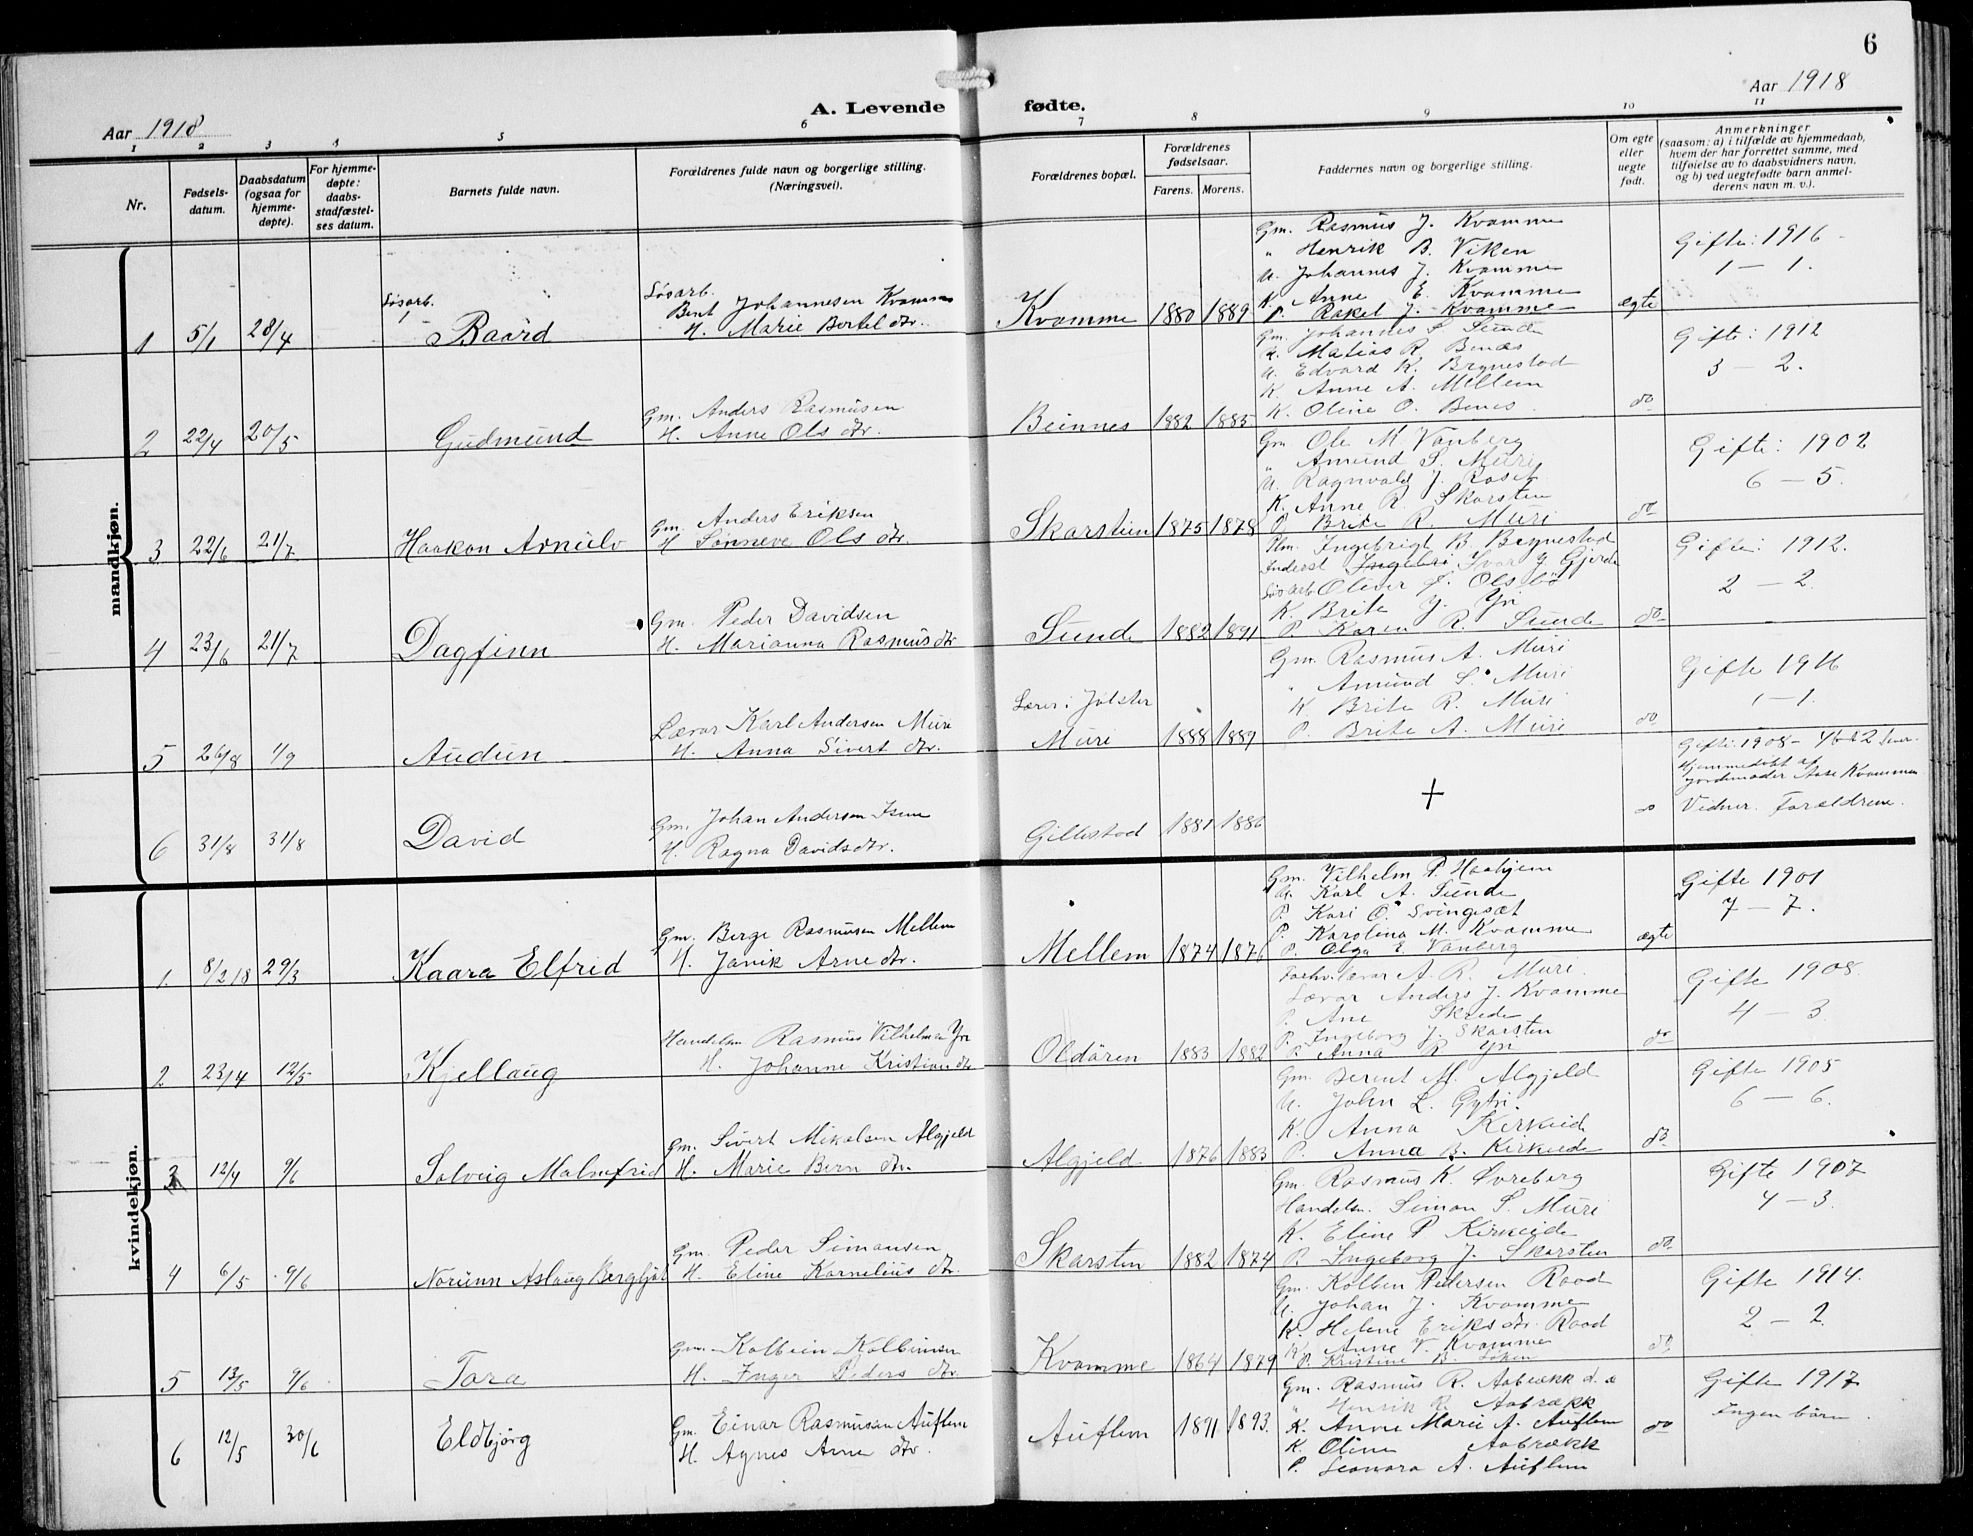 6
Aar 1918
A. Levende fødte.
Aar 1918
1 2 3 4 5 6 7 8 9 10 11
Nr.
Fødsels-
datum.
Daabsdatum
(ogsaa for
hjemme-
døpte).
For hjemme-
døpte:
daabs-
stadfæstel-
ses datum.
Barnets fulde navn.
Forældrenes fulde navn og borgerlige stilling.
(Næringsvei).
Forældrenes bopæl.
Forældrenes
fødselsaar.
Farens. Morens.
Faddernes navn og borgerlige stilling.
Om egte
eller
uegte
født.
Anmerkninger
(saasom: a) i tilfælde av hjemmedaab,
hvem der har forrettet samme, med
tilføielse av to daabsvidners navn,
og b) ved uegtefødte barn anmel-
derens navn m. v.).
mandkjøn.
1 5/1 28/4 Baard
Løsarb.
Bent Johannesen Kvamme
H. Marie Bertel dtr.
Kvamme 1880 1889
Gm. Rasmus J. Kvamme
" Henrik B. Viken
U. Johannes J. Kvamme
K. Anne E. Kvamme
P. Rakel J. Kvamme
egte
Gifte: 1916
1 — 1.
2 22/4 20/5 Gudmund
Gm. Anders Rasmusen
H. Anne Ols dtr.
Beinnes 1882 1885
Gm. Johannes S. Sunde
U. Matias R. Benes
U. Edvard K. Brynestad
K. Anne A. Mellem
K. Oline O. Benes
do
Gifte: 1912
3 — 2.
3 22/6 21/7 Haakon Arnulv
Gm. Anders Eriksen
H Sønneve Ols dtr.
Skarstein 1875 1878
Gm. Ole M. Vanberg
" Amund S. Muri
U. Ragnvald J. Roset
K. Anne R. Skarsten
P. Brite R. Muri
do
Gifte: 1902
6 — 5.
4 23/6 21/7 Dagfinn
Gm. Peder Davidsen
H. Marianna Rasmus dtr
Sunde 1882 1891
Ingebrigt B. Brynestad
Inderst Ivar J. Gjerde
Løsarb Oliver Olsbø
K. Brite J. Yri
P. Karen R. Sunde
do
Gifte: 1912.
2 — 2.
5 26/8 1/9 Audun
Lærar Karl Andersen Muri
H. Anna Sivert dtr.
Lærer i Jølster
Muri 1888 1889
Gm. Rasmus A. Muri
" Amund S. Muri
K Brite R. Muri
P. Brite A. Muri
do
Gifte 1916
1 — 1.
6 31/8 31/8 David
Gm. Johan Andersen
H. Ragna Davids dtr.
Gillestad 1881 1886
+
do
Gifte: 1908
Hjemmedøbt af
Jordemoder Aase Kvamme
Vidner. Forældrene.
kvindekjøn.
1 8/2 18 29/3 Kaara Elfrid
Gm. Berge Rasmusen Mellem
H. Janik Arne dtr.
Mellem 1874 1876
Gm. Vilhelm P. Haahjem
U. Karl A. Sunde
P. Kari O. Svingesæt
P. Karolina M. Kvamme
P. Olga E. Vanberg
egte
Gifte 1901
7 — 7.
2 23/4 12/5 Kjellaug
Handelsm Rasmus Vilhelmsen Yri
H. Johanne Kristian dtr
Oldøren 1883 1882
Forhv. lærar A. R. Muri
Lærar Anders J. Kvamme
P. Ane Skrede
P. Ingeborg J. Skarsten
P. Anna R Yri
do
Gifte 1908.
4 — 3
3 12/4 9/6 Solveig Malmfrid
Gm. Sivert Mikalsen Algjeld
H. Marie Bern dtr.
Algjeld 1876 1883
Gm. Berent M. Algjeld
U. John L. Gytri.
K. Anna Kirkeide
P. Anna B. Kirkeide
do
Gifte 1905
6 — 6.
4 6/5 9/6 Norunn Aslaug Bergljot
Gm. Peder Simonsen
H. Eline Kornelius dtr.
Skarsten 1882 1874
Gm. Rasmus K. Øvreberg
Handelsm. Simon S. Muri
K. Eline P. Kirkeide
P. Ingeborg J. Skarsten
do
Gifte 1907
4 — 3.
5 13/5 9/6 Tora
Gm. Kolbein Kolbeinsen
H. Inger Peders dtr.
Kvamme 1864 1879
Gm. Kolben Pedersen Raad
U. Johan J. Kvamme
K. Helene Eriks dtr. Raad
K. Anne V. Kvamme
P. Kristine B.
do
Gifte 1914.
2 — 2.
6 12/5 30/6 Eldbjørg
Gm. Einar Rasmusen Auflem
H. Agnes Arne dtr.
Auflem 1891 1893.
Gm. Rasmus R. Aabrækk d. æ
" Henrik R. Aabrækk
K. Anne Marie A. Auflem
K. Oline Aabrækk
P. Leonora A. Auflem
do
Gifte 1917
Ingen børn